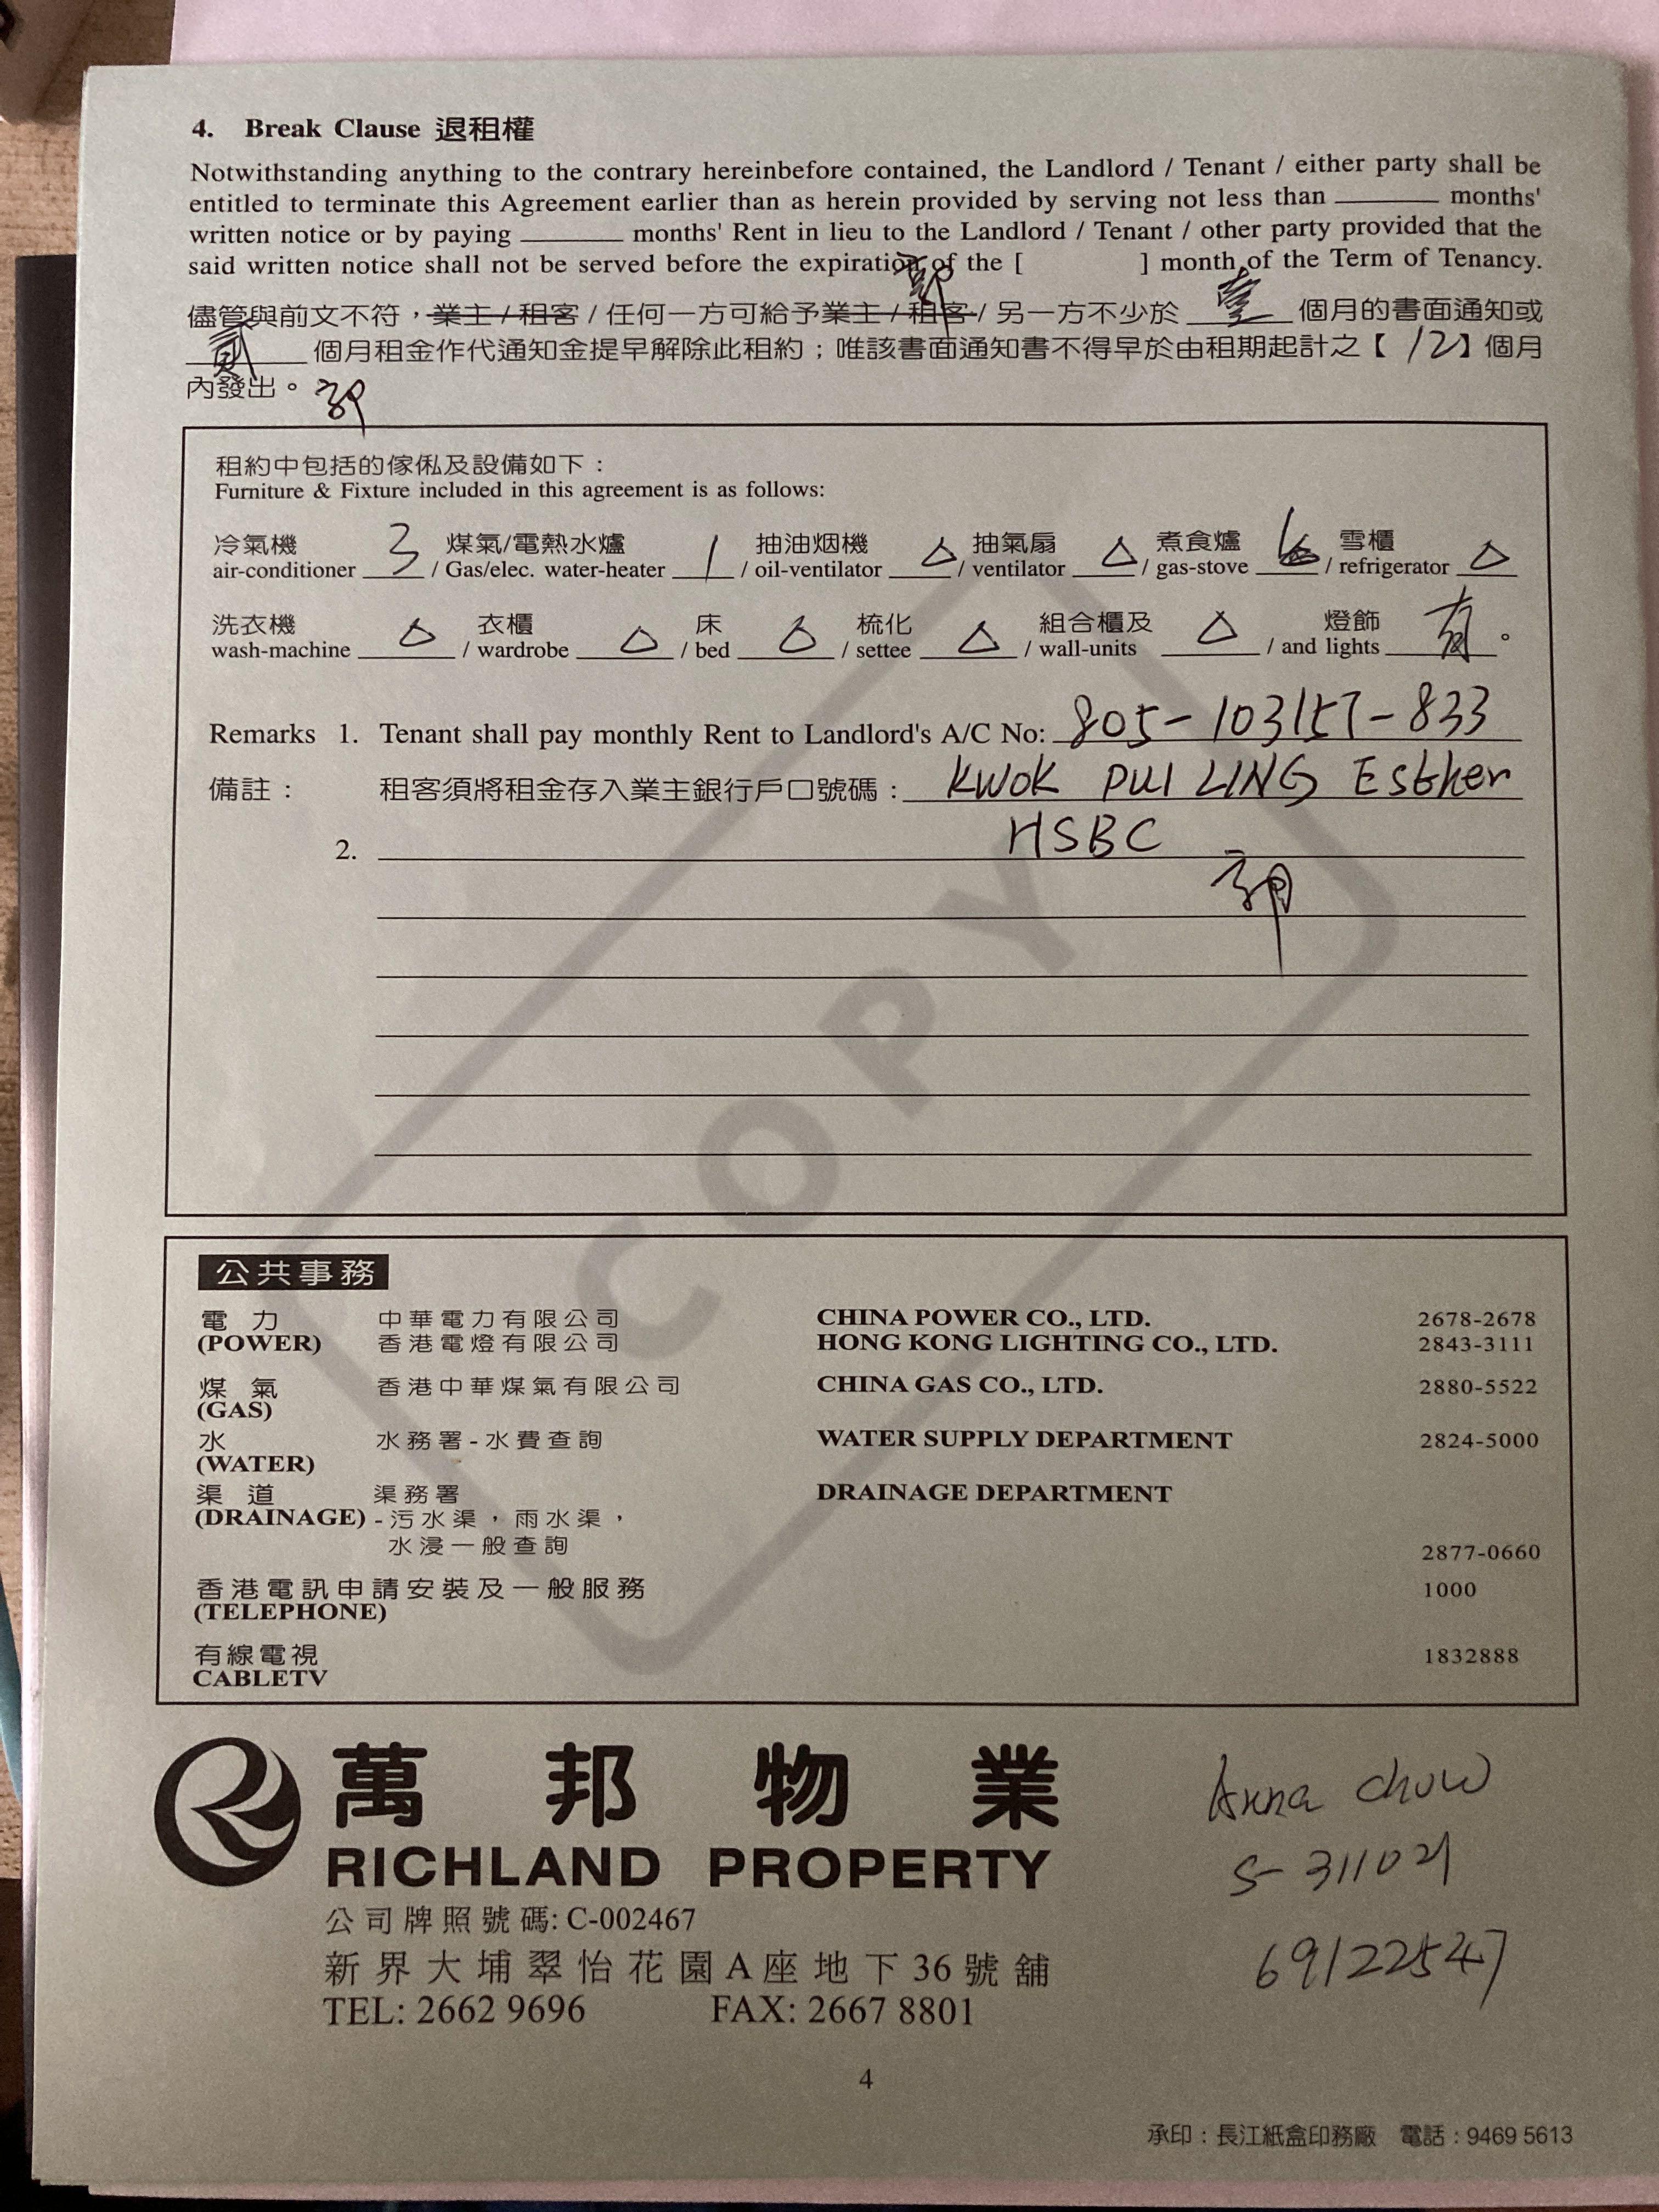 4. Break Clause 退租權
Notwithstanding anything to the contrary hereinbefore contained, the Landlord / Tenant / either party shall be
entitled to terminate this Agreement earlier than as herein provided by serving not less than ________ months'
written notice or by paying ________ months' Rent in lieu to the Landlord / Tenant / other party provided that the
said written notice shall not be served before the expiration of the [ ] month of the Term of Tenancy.
儘管與前文不符，業主 / 租客 / 任何一方可給予業主 / 租客 / 另一方不少於 壹 個月的書面通知或
貳 個月租金作代通知金提早解除此租約；唯該書面通知書不得早於由租期起計之【 12】個月
內發出。
租約中包括的傢俬及設備如下：
Furniture & Fixture included in this agreement is as follows:
冷氣機 3 煤氣/電熱水爐 1 抽油烟機 △ 抽氣扇 △ 煮食爐 雪櫃 △
air-conditioner / Gas/elec. water-heater / oil-ventilator / ventilator / gas-stove / refrigerator
洗衣機 △ 衣櫃 △ 床 △ 梳化 △ 組合櫃及 △ 燈飾 有 。
wash-machine / wardrobe / bed / settee / wall-units / and lights
Remarks 1. Tenant shall pay monthly Rent to Landlord's A/C No: 805-103157-833
備註： 租客須將租金存入業主銀行戶口號碼： KWOK PUI LING Esther
2. HSBC
郭
COPY
公共事務
電力 中華電力有限公司 CHINA POWER CO., LTD. 2678-2678
(POWER) 香港電燈有限公司 HONG KONG LIGHTING CO., LTD. 2843-3111
煤氣 香港中華煤氣有限公司 CHINA GAS CO., LTD. 2880-5522
(GAS)
水 水務署-水費查詢 WATER SUPPLY DEPARTMENT 2824-5000
(WATER)
渠道 渠務署 DRAINAGE DEPARTMENT
(DRAINAGE) -污水渠，雨水渠，
水浸一般查詢 2877-0660
香港電訊申請安裝及一般服務 1000
(TELEPHONE)
有線電視 1832888
CABLETV
萬邦物業 Anna Chow
RICHLAND PROPERTY S-311021
公司牌照號碼: C-002467
新界大埔翠怡花園A座地下36號舖 69122547
TEL: 2662 9696 FAX: 2667 8801
4
承印：長江紙盒印務廠 電話：9469 5613